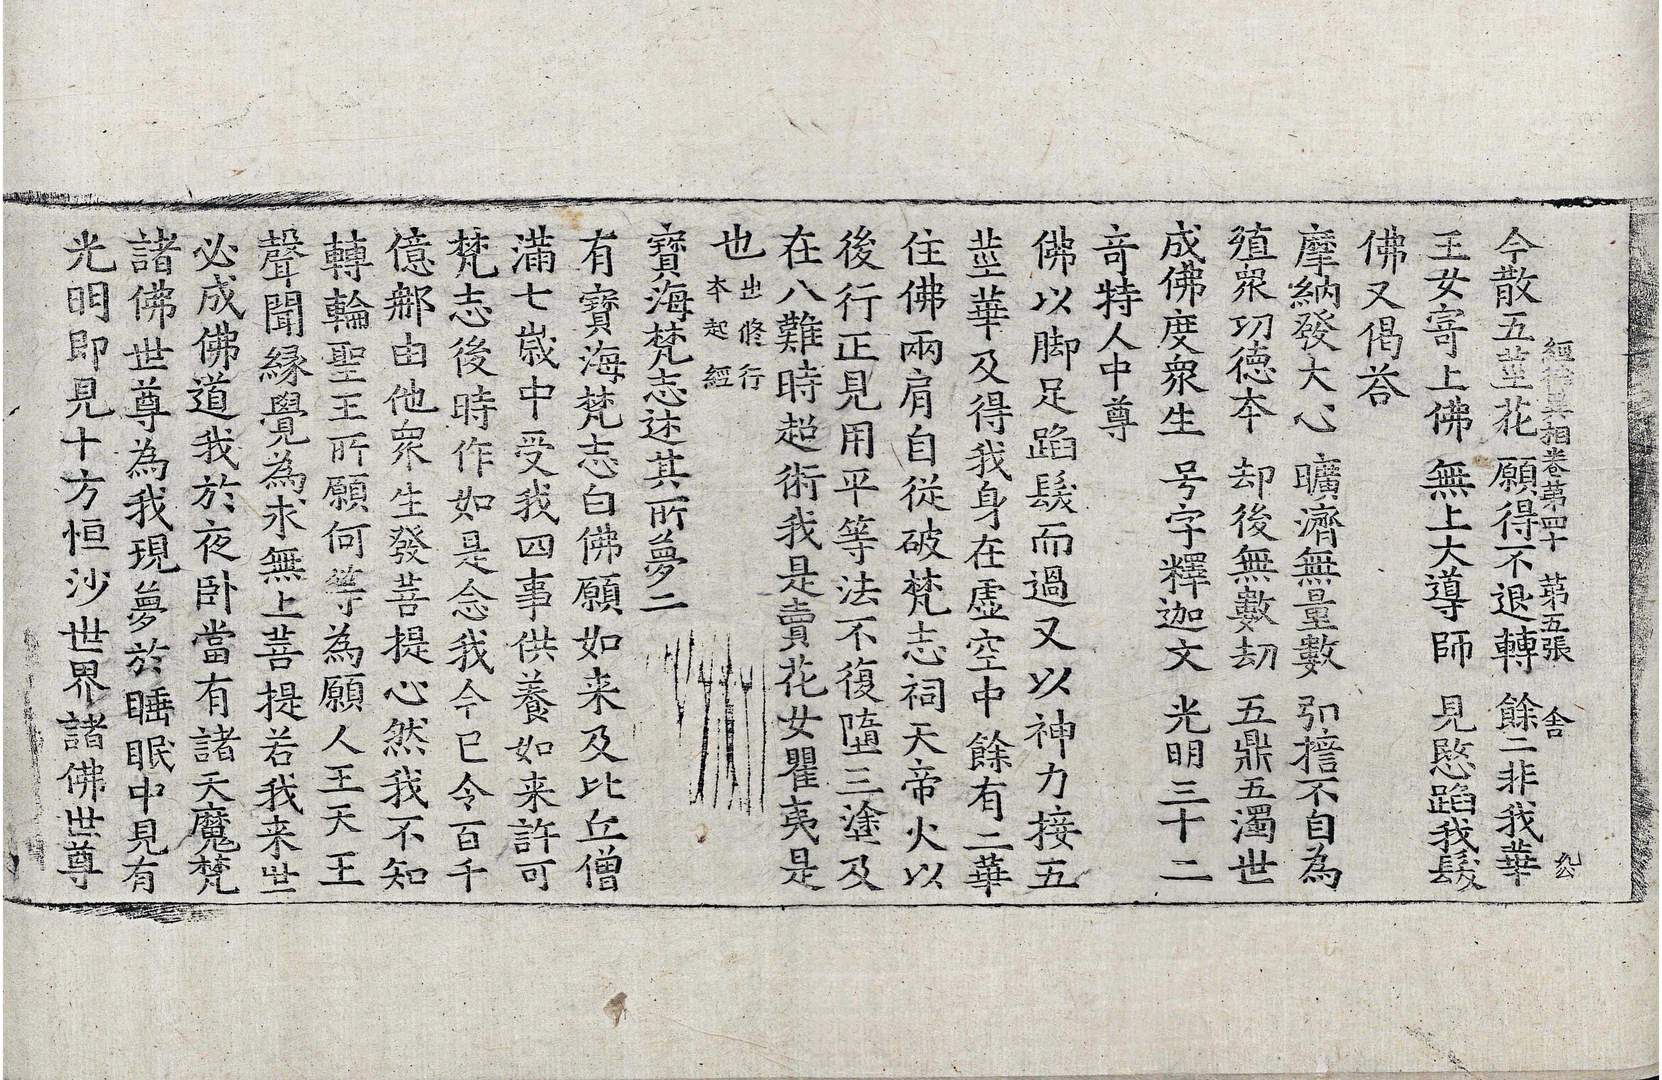 經律異相卷第四十 第五張 舍
今散五莖花 願得不退轉 餘二非我華
王女寄上佛 無上大導師 見愍蹈我髮
佛又偈荅
摩納發大心 曠濟無量數 引揞不自為
殖衆功德夲 却後無數劫 五鼎五濁世
成佛度衆生 号字釋迦文 光明三十二
竒特人中尊
佛以脚足蹈髮而過又以神力接五
莖華及得我身在虚空中餘有二華
住佛兩肩自従破梵志祠天帝火以
後行正見用平等法不復墮三塗及
在八難時超術我是賣花女瞿夷是
也出修行
夲起經
寶海梵志述其所夢二
有寶海梵志白佛願如来及比丘僧
滿七歲中受我四事供養如来許可
梵志後時作如是念我今已令百千
億那由他衆生發菩提心然我不知
轉輪聖王所願何等為願人王天王
聲聞縁覺為求無上菩提若我来世
必成佛道我於夜卧當有諸天魔梵
諸佛世尊為我現夢於睡眠中見有
光明即見十方恒沙世界諸佛世尊